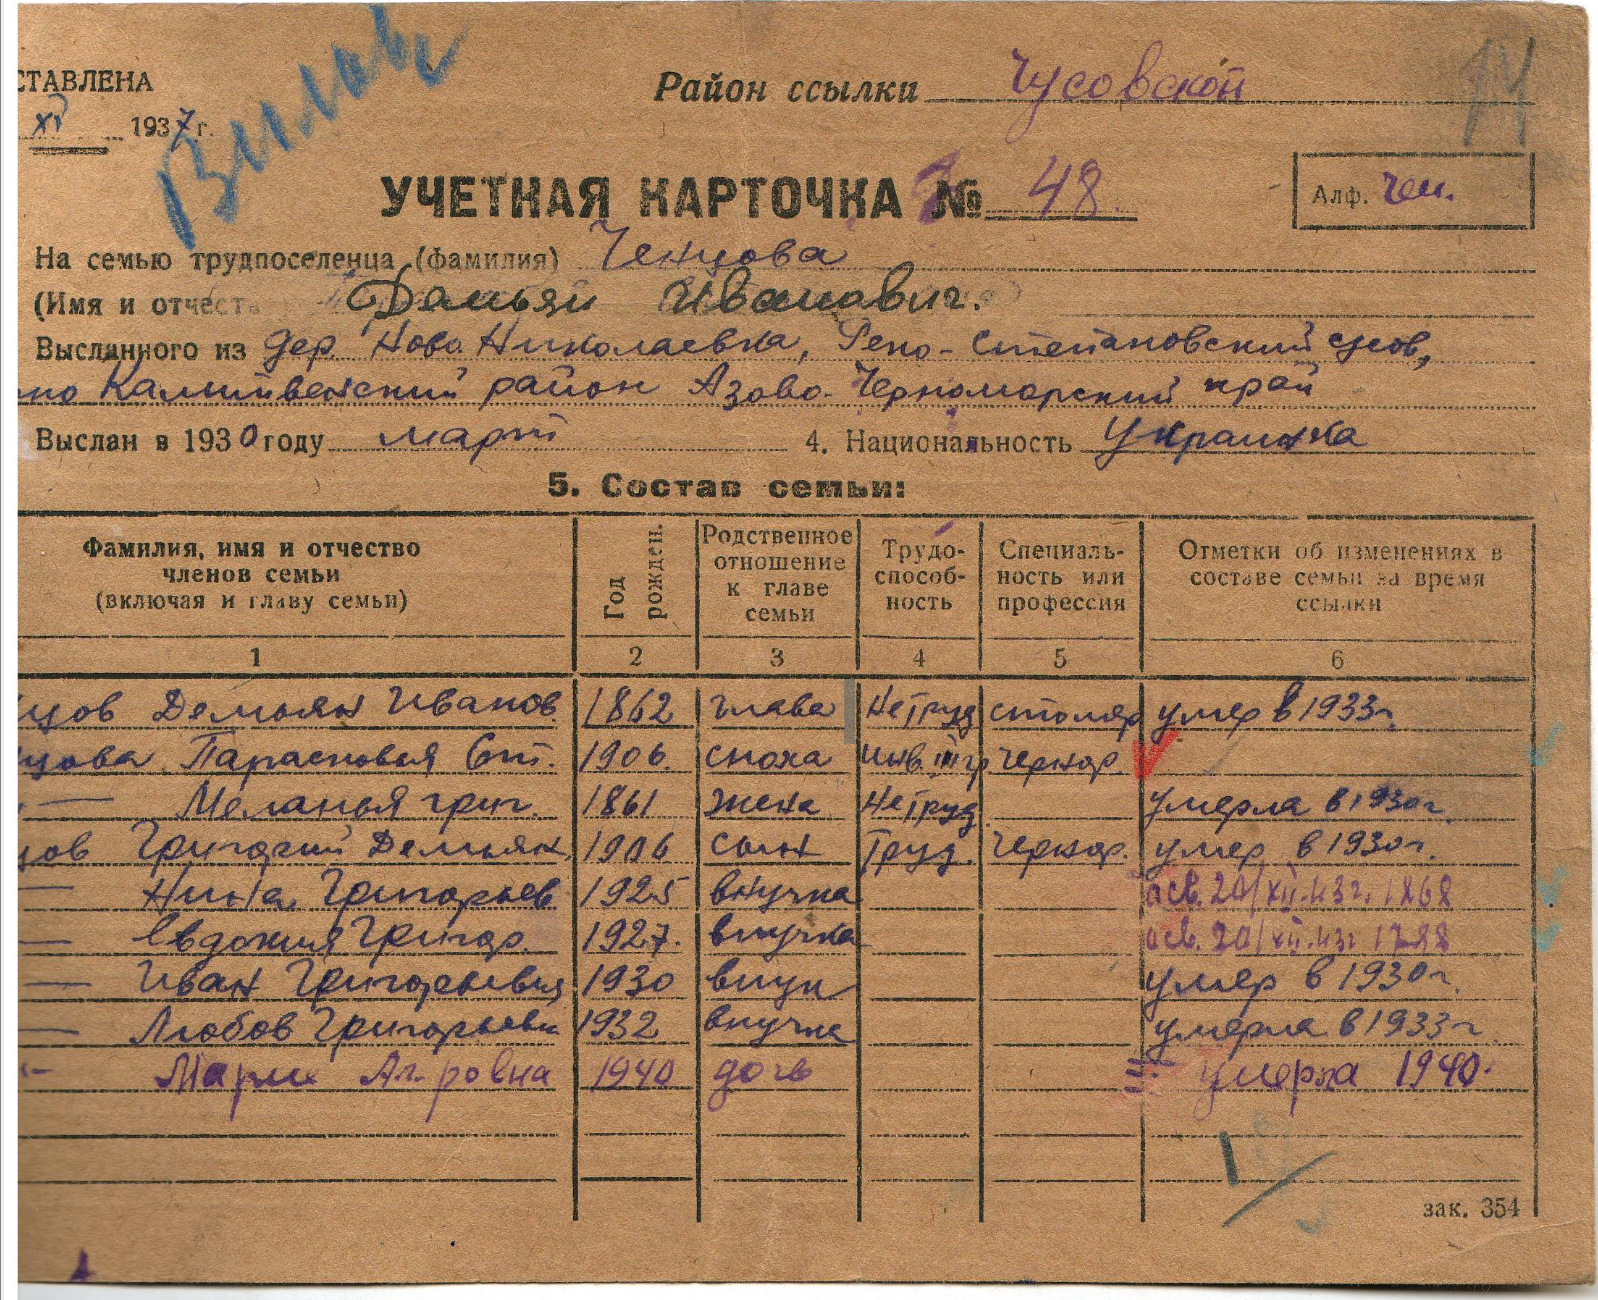 СТАВЛЕНА
Район ссылки Чусовской
XI 1937 г.
УЧЕТНАЯ КАРТОЧКА № 48
Алф. Чен.
На семью трудпоселенца (фамилия) Ченцова
(Имя и отчест Демьян Иванович.
Высланного из дер. Ново Николаевка, Степановский
но Калитвенский район Азово-Черноморский край
Выслан в 1930 году март 4. Национальность Украинка
5. Состав семьи:
Фамилия, имя и отчество членов семьи (включая и главу семьи) Год рожден. Родственное отношение к главе семьи Трудо-способ-ность Специаль-ность или профессия Отметки об изменениях в составе семьи за время ссылки
1 2 3 4 5 6
цов Демьян Иванов. 1862 глава Нетруд столяр умер в 1933г.
цова Парасковья Ст. 1906 сноха инв. III гр чернор.
— Меланья григ. 1861 жена Нетруд умерла в 1930г.
цов Григорий Демьян. 1906 сын Труд. чернор. умер в 1930г.
— Нина Григорьев 1925 внучка осв. 20/XII.43г. 1268
— Евдокия Григор. 1927. внучка осв. 20/XII.43г 1288
— Иван Григорьевич 1930 внук умер в 1930г.
— Любов Григорьевн 1932 внучка умерла в 1933г
— 1940 дочь умерла 1940.
зак. 354